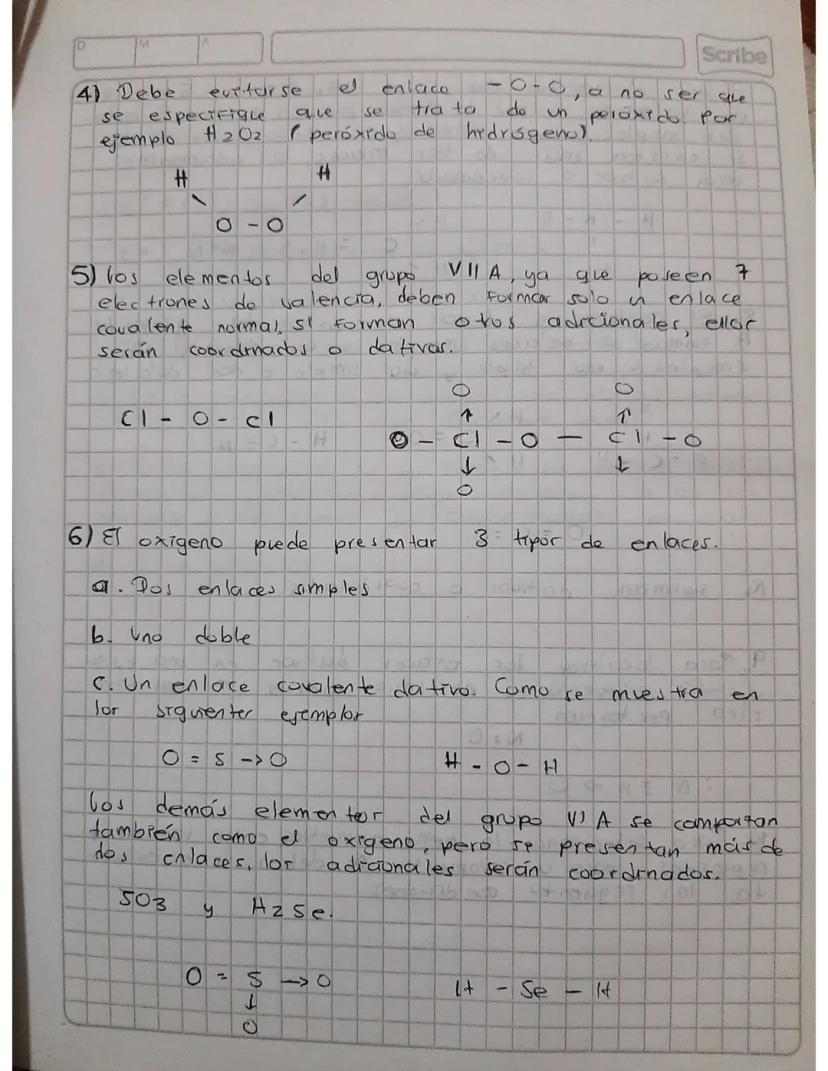 D M A
Scribe
4) Debe evitarse el enlace -O-O, a no ser que
se especifique que se trata de un peróxido. Por
ejemplo H2O2 (peróxido de hidrógeno).
H H
O - O
5) los elementos del grupo VIIA, ya que poseen 7
electrones de valencia, deben formar solo un enlace
covalente normal, si forman otros adicionales, ellos
serán coordinados o dativos.
O O
Cl - O - Cl ↑ ↑
O - Cl - O - Cl - O
↓ ↓
O
6) El oxígeno puede presentar 3 tipos de enlaces.
a. Dos enlaces simples
b. Uno doble
c. Un enlace covalente dativo. Como se muestra en
los siguientes ejemplos
O = S -> O H - O - H
los demás elementos del grupo VIA se comportan
también como el oxígeno, pero se presentan más de
dos enlaces, los adicionales serán coordinados.
SO3 y H2Se.
O = S -> O H - Se - H
↓
O